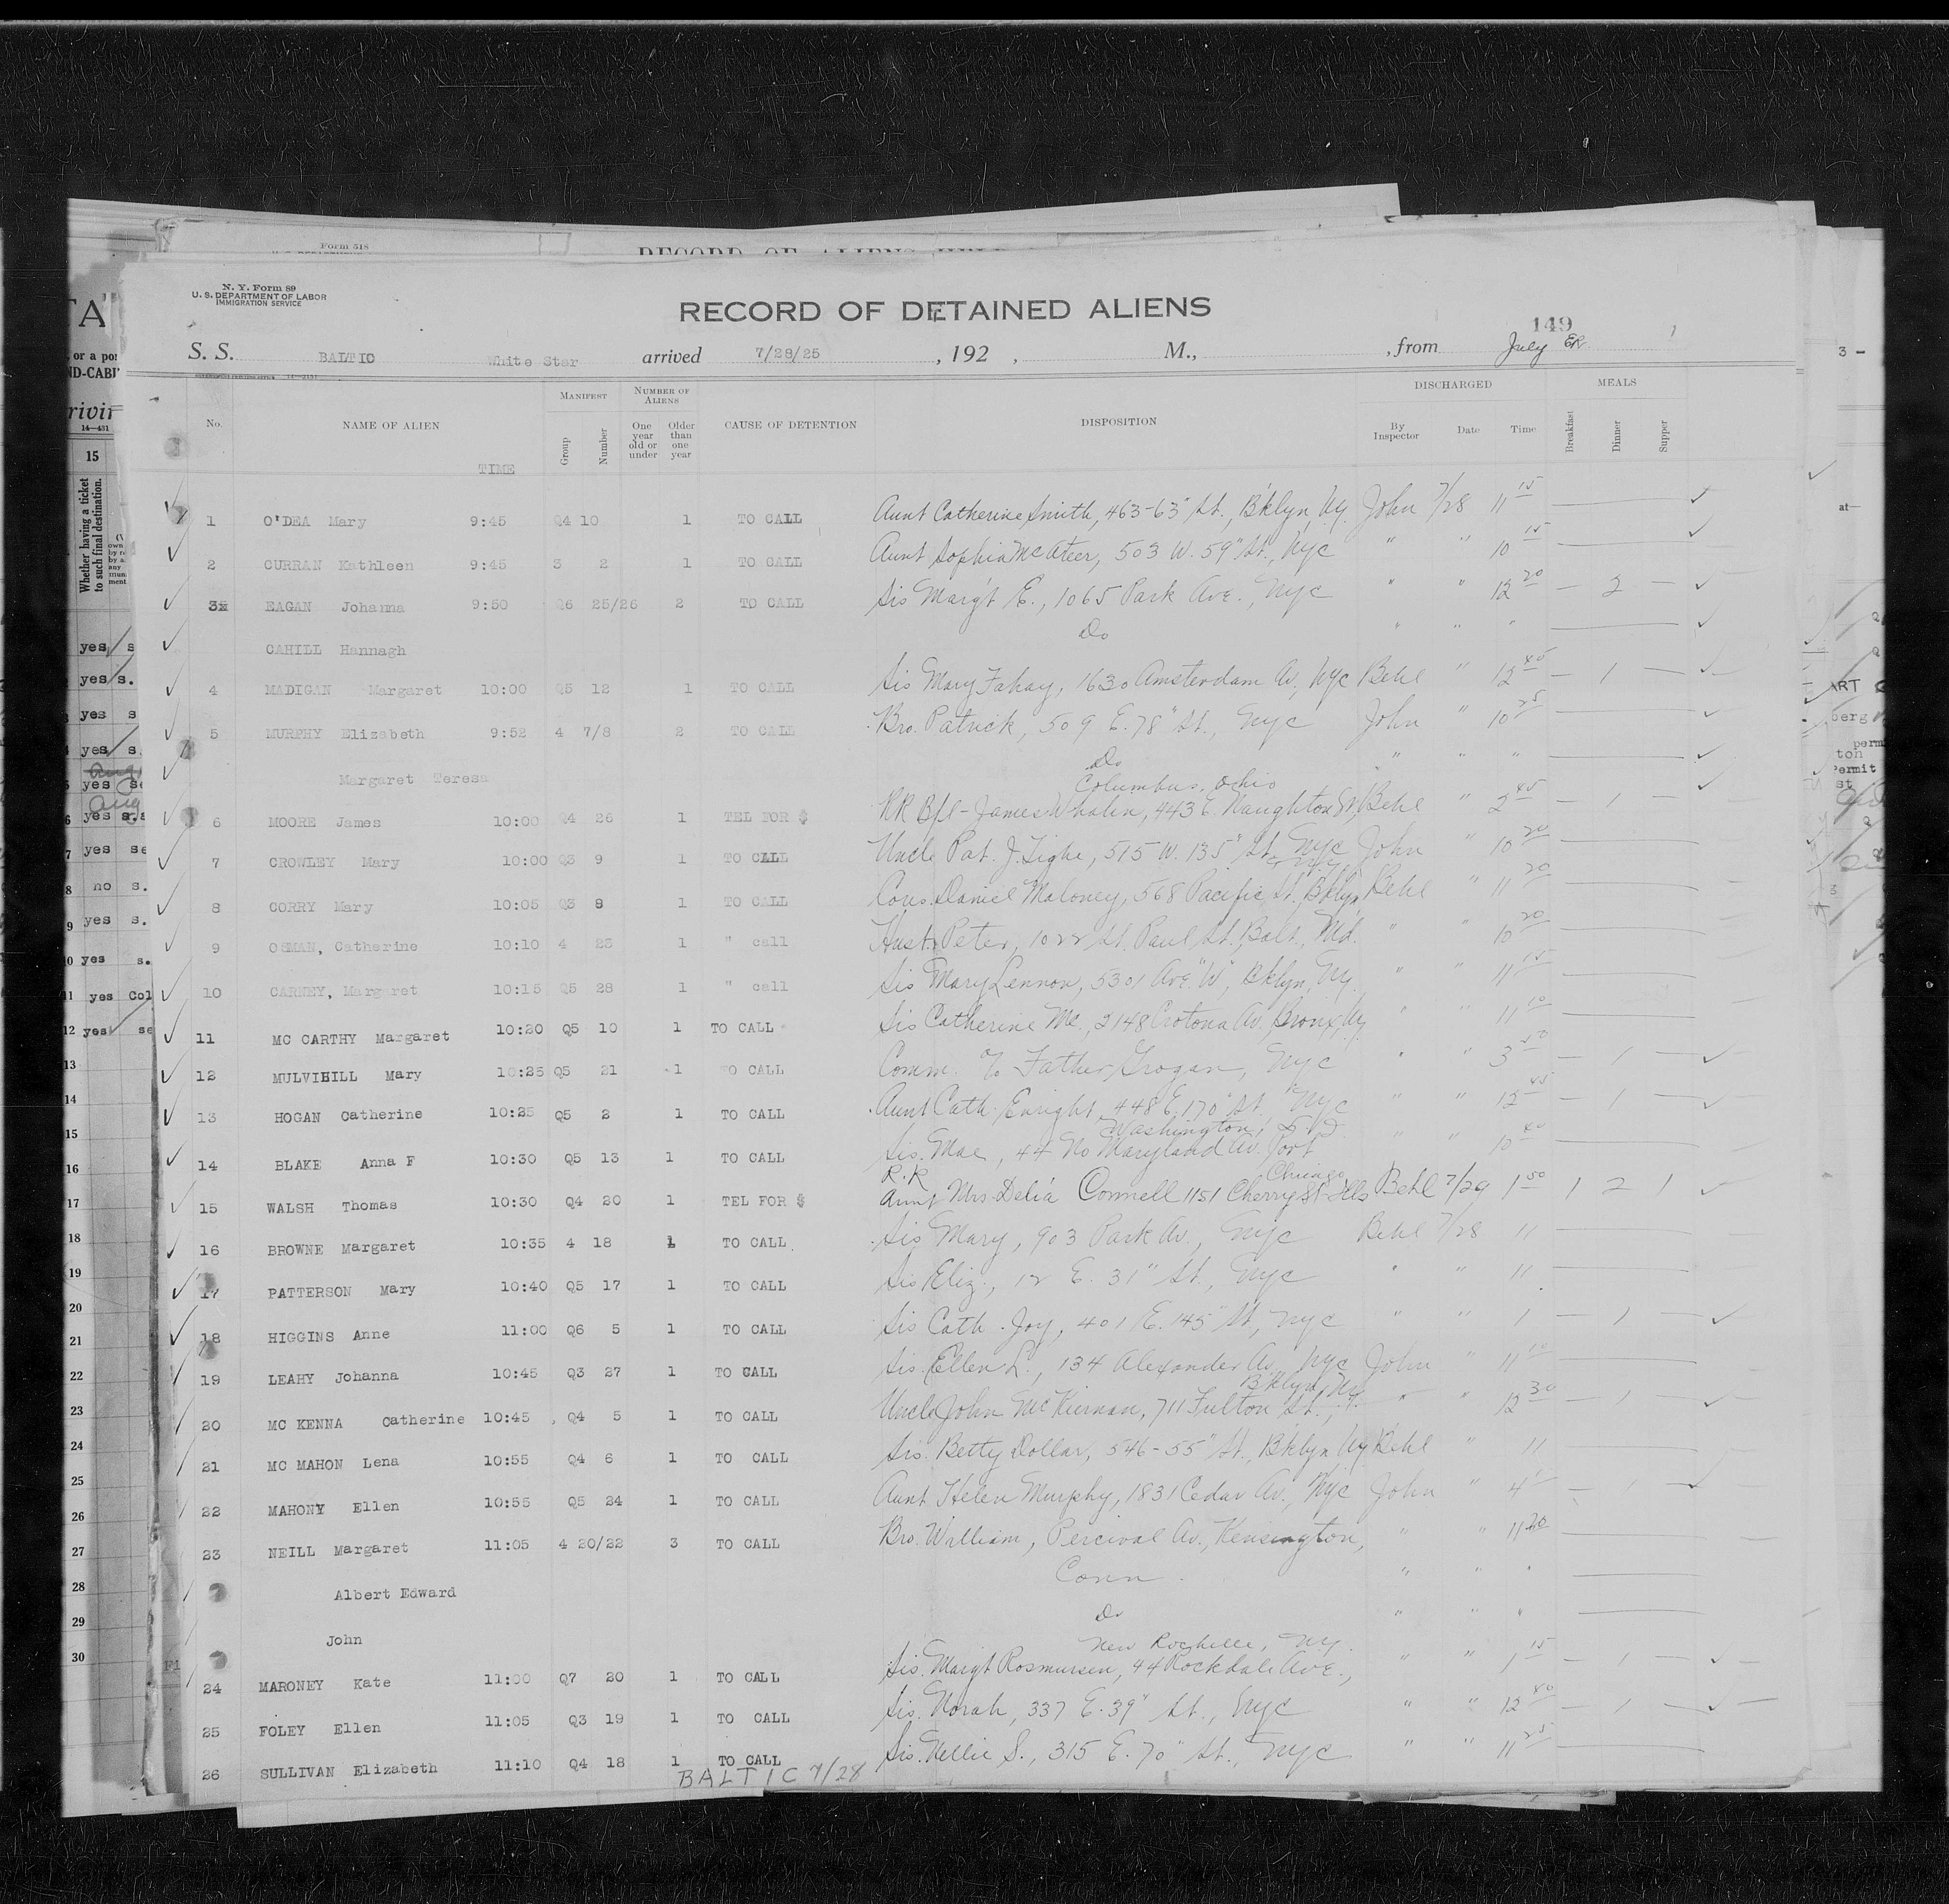 Form 518
RECORD OF ALIENS HELD
N. Y. Form 89
U. S. DEPARTMENT OF LABOR
IMMIGRATION SERVICE
RECORD OF DETAINED ALIENS
149
S. S. BALTIC White Star arrived 7/28/25, 192 , M., , from July ER 1
No. NAME OF ALIEN TIME MANIFEST Group Number NUMBER OF ALIENS One year old or under Older than one year CAUSE OF DETENTION DISPOSITION DISCHARGED By Inspector Date Time MEALS Breakfast Dinner Supper
1 O'DEA Mary 9:45 Q4 10 1 TO CALL Aunt Catherine Smith, 463-63" St., B'klyn, Ny. John 7/28 11 15
2 CURRAN Kathleen 9:45 3 2 1 TO CALL Aunt Sophia McAteer, 503 W. 59" St., Nyc " " 10 15
3x EAGAN Johanna 9:50 Q6 25/26 2 TO CALL Sis Marg't E., 1065 Park Ave., Nyc " " 12 20 — 2 —
CAHILL Hannagh Do " " "
4 MADIGAN Margaret 10:00 Q5 12 1 TO CALL Sis Mary Fahay, 1630 Amsterdam Av, Nyc Behl " 12 45 — 1 —
5 MURPHY Elizabeth 9:52 4 7/8 2 TO CALL Bro. Patrick, 509 E. 78" St., Nyc John " 10 25
Margaret Teresa Do " " "
Columbus, Ohio
6 MOORE James 10:00 Q4 26 1 TEL FOR $ RR Bfl - James Whalen, 443 E. Naughton St, Behl " 2 45 — 1 —
7 CROWLEY Mary 10:00 Q3 9 1 TO CALL Uncle Pat. J. Tighe, 515 W. 135" St, Nyc John " 10 20
8 CORRY Mary 10:05 Q3 8 1 TO CALL Cous. Daniel Maloney, 568 Pacific St. B'klyn, Behl " 11 20
9 OSMAN, Catherine 10:10 4 23 1 " call Husb Peter, 1022 St. Paul St. Balt., Md. " " 10 20
10 CARNEY, Margaret 10:15 Q5 28 1 " call Sis Mary Lennon, 5301 Ave "W", Bklyn, Ny. " " 11 15
11 MC CARTHY Margaret 10:20 Q5 10 1 TO CALL Sis Catherine Mc., 2148 Crotona Av. Bronx, Ny " " 11 10
12 MULVIHILL Mary 10:25 Q5 21 1 TO CALL Comm. % Father Grogan, Nyc " " 3 50 — 1 —
13 HOGAN Catherine 10:25 Q5 2 1 TO CALL Aunt Cath. Enright, 448 E. 170" St. Nyc " " 12 45 — 1 —
Washington, D. C.
14 BLAKE Anna F 10:30 Q5 13 1 TO CALL Sis. Mae, 44 No Maryland Av. Port " " 10 40
R.R Chicago
15 WALSH Thomas 10:30 Q4 20 1 TEL FOR $ Aunt Mrs. Delia Connell 1151 Cherry St Ills Behl 7/29 1 50 1 2 1
16 BROWNE Margaret 10:35 4 18 1 TO CALL Sis Mary, 903 Park Av., Nyc Behl 7/28 11
17 PATTERSON Mary 10:40 Q5 17 1 TO CALL Sis Eliz., 12 E. 31" St., Nyc " " 11
18 HIGGINS Anne 11:00 Q6 5 1 TO CALL Sis Cath. Joy, 401 E. 145" St, Nyc " " 1 — 1 —
19 LEAHY Johanna 10:45 Q3 27 1 TO CALL Sis. Ellen L., 134 Alexander Av., Nyc John " 11 10
B'klyn, Ny.
20 MC KENNA Catherine 10:45 Q4 5 1 TO CALL Uncle John McKiernan, 711 Fulton St., " " 12 30 — 1 —
21 MC MAHON Lena 10:55 Q4 6 1 TO CALL Sis. Betty Dollar, 546-55" St., B'klyn Ny Behl " 11
22 MAHONY Ellen 10:55 Q5 24 1 TO CALL Aunt Helen Murphy, 1831 Cedar Av., Nyc John " 4
23 NEILL Margaret 11:05 4 20/22 3 TO CALL Bro. William, Percival Av., Kensington, " " 11 20
Albert Edward Conn. " " "
John Do " " "
New Rochelle, Ny.
24 MARONEY Kate 11:00 Q7 20 1 TO CALL Sis. Marg't Rosmursen, 44 Rockdale Ave., " " 1 15 — 1 —
25 FOLEY Ellen 11:05 Q3 19 1 TO CALL Sis. Norah, 337 E. 39" St., Nyc " " 12 40 — 1 —
26 SULLIVAN Elizabeth 11:10 Q4 18 1 TO CALL Sis. Nellie S., 315 E. 70" St., Nyc " " 11 25
BALTIC 7/28